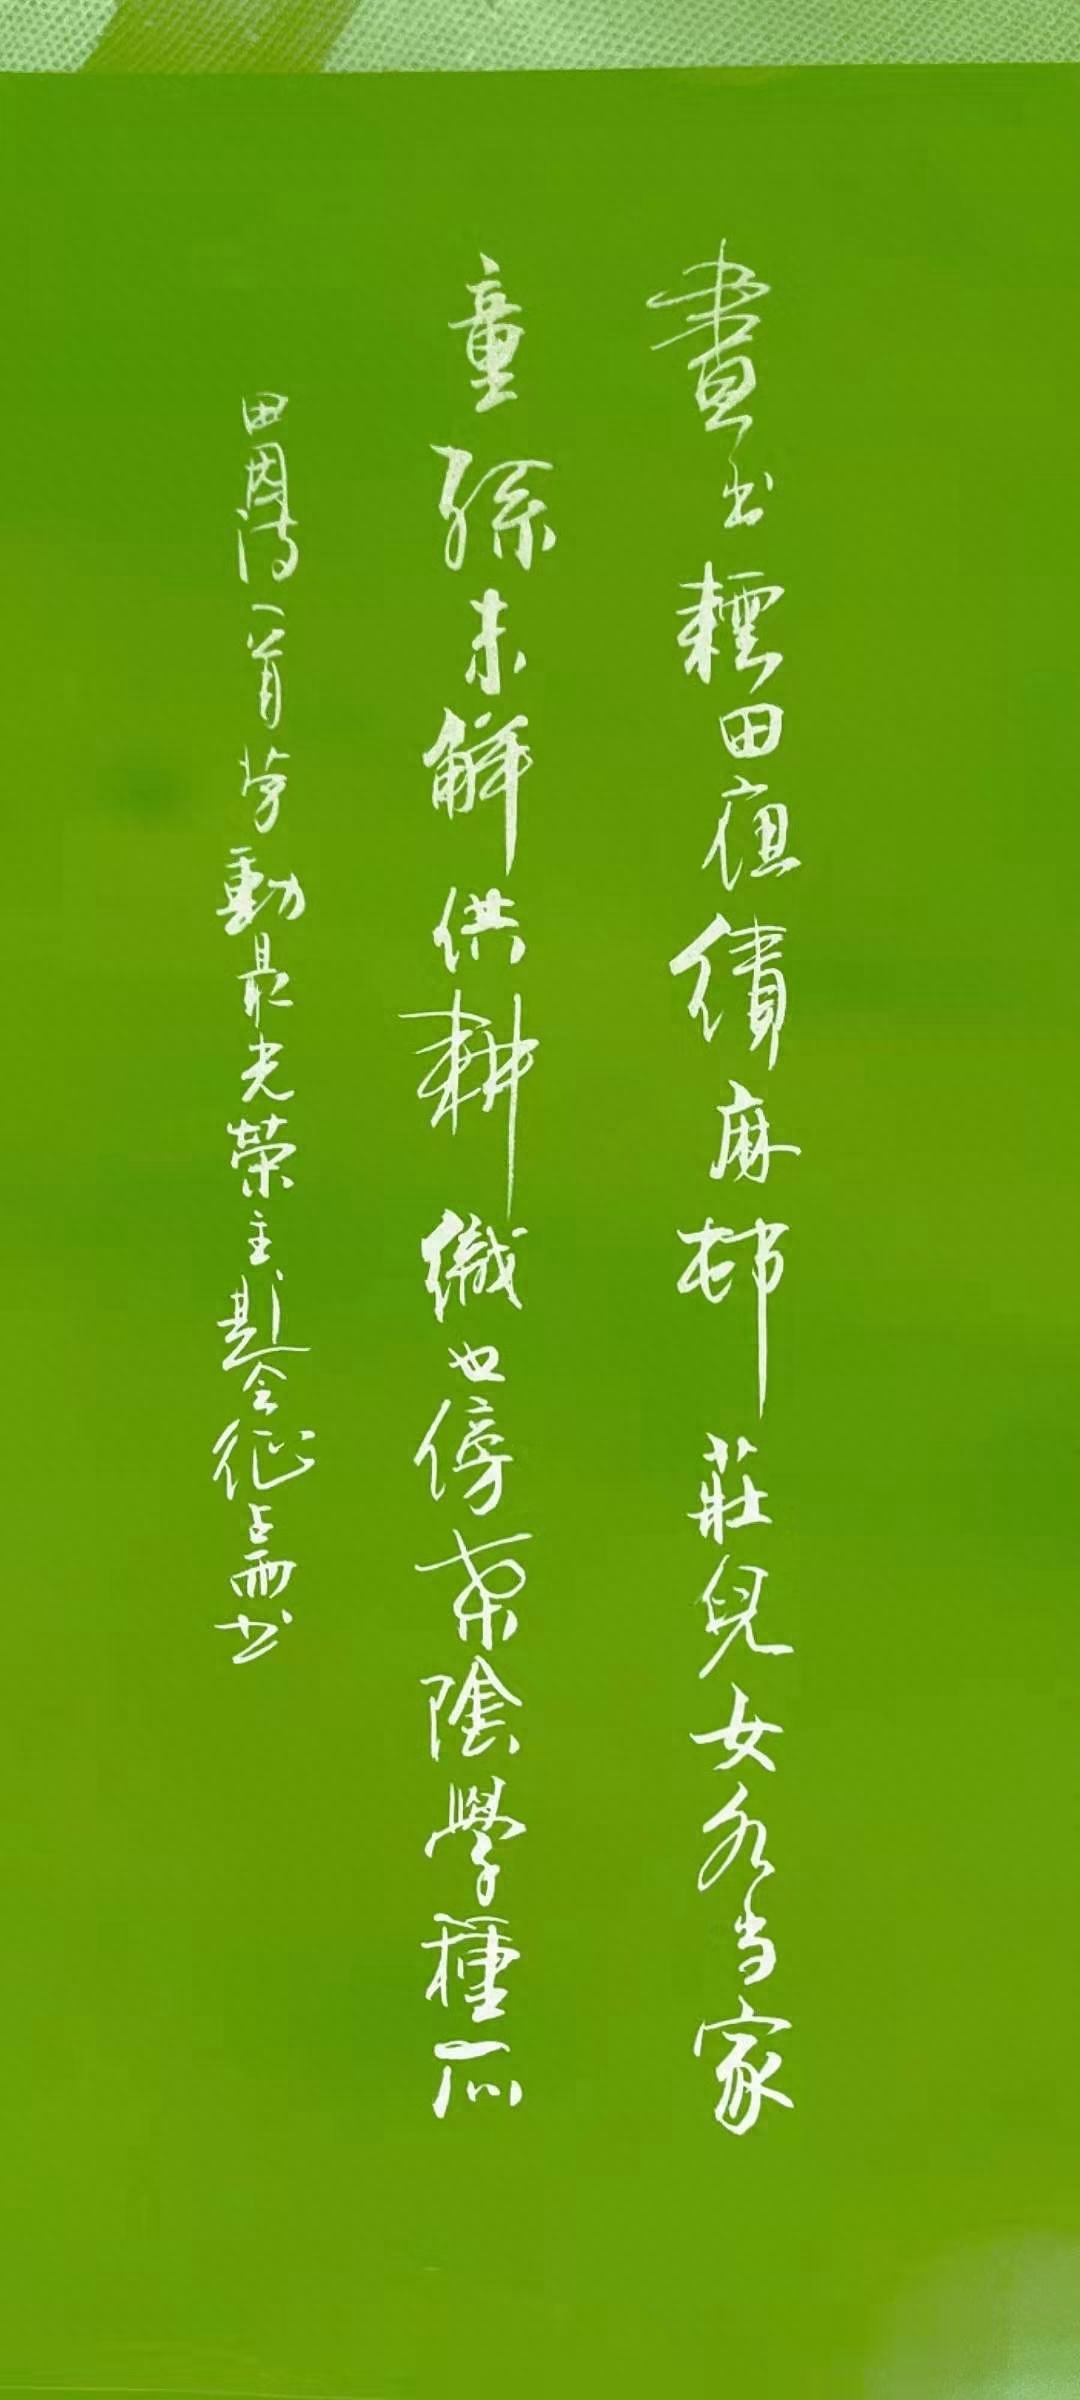 晝出耘田夜績麻邨莊兒女各当家
童孫未解供耕織也傍桑陰學種瓜
田園诗一首劳動最光榮主题令征占雨书